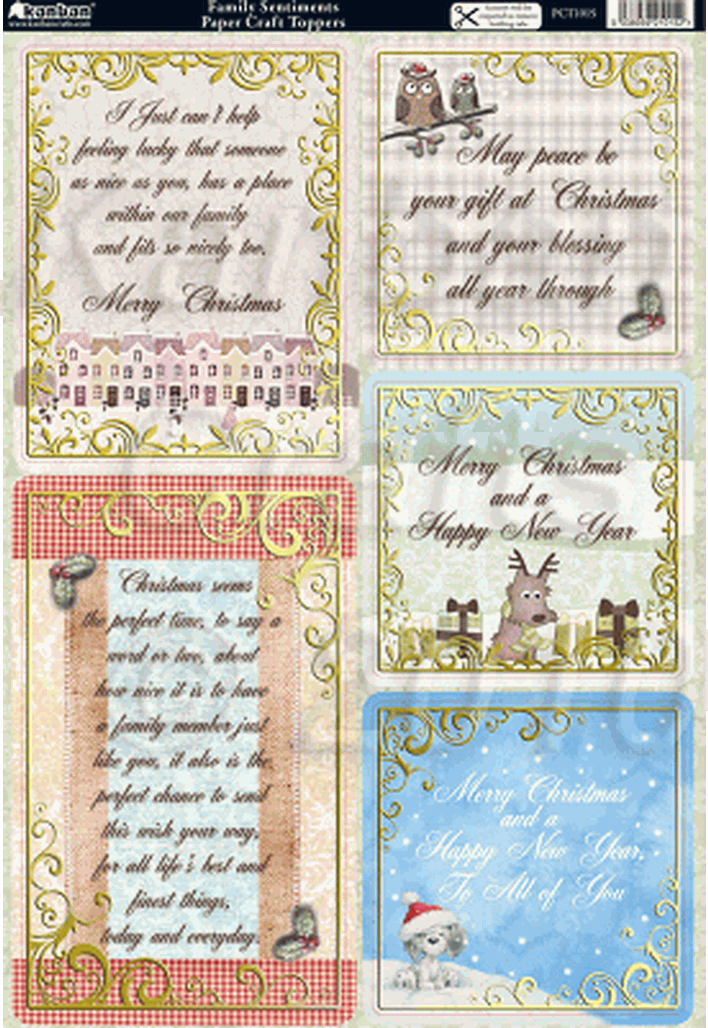 kanban
www.kanbancrafts.com
Family Sentiments
Paper Craft Toppers
I Just can't help
feeling lucky that someone
as nice as you, has a place
within our family
and fits so nicely too.
Merry Christmas
May peace be
your gift at Christmas
and your blessing
all year through
Merry Christmas
and a
Happy New Year
Christmas seems
the perfect time, to say a
word or two, about
how nice it is to have
a family member just
like you, it also is the
perfect chance to send
this wish your way,
for all life's best and
finest things,
today and everyday.
Merry Christmas
and a
Happy New Year,
To All of You